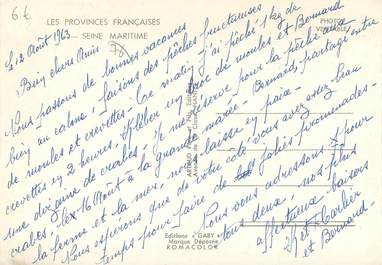 6€
LES PROVINCES FRANÇAISES
— SEINE MARITIME
PHOTO
VÉRITABLE
76
le 12 Août 1963
Bien chers Amis
Nous passons de bonnes vacances
bien au calme, faisons des pêches fructueuses
de moules et crevettes. Ce matin j'ai pêché 1 kg de
crevettes en 2 heures. Hébert un sac de moules et Bernard
une dizaine de crabes. Je me réserve pour la pêche aux
crabes, le 16 Août à la grande marée. Bernard partage entre
la ferme et la mer, nous laisse en paix.
Nous espérons que de votre côté vous avez assez beau
temps pour faire de jolies promenades.
Nous vous adressons pour
tous deux, nos plus
affectueux baisers
et Bernard
Editions "GABY"
Marque Déposée
ROMACOLOR